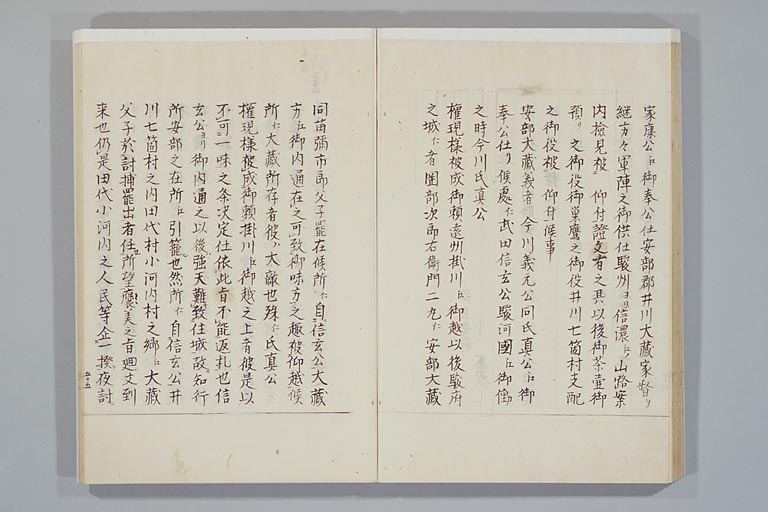 家康公江御奉公仕安部郡井川大蔵家督ヲ
継方々軍陣之御供仕駿州ヨリ信濃江山路案
内檢見被　仰付證文有之其以後御茶壷御
預ヲ之御役御巣鷹之御役井川七箇村支配
之御役被　仰付候事
安部大蔵義者今川義元公同氏真公江御
奉公仕リ候處仁武田信玄公駿河國江御働
之時今川氏真公
權現様被成御頼遠州掛川江御越以後駿府
之城仁者岡部次郎右衛門二ノ丸仁安部大蔵
同苗弥市郎父子罷在候所仁自信玄公大蔵
方江御内通在之可致御味方之趣被仰越候
所仁大蔵所存者彼ハ大敵也殊仁氏真公
權現様被成御頼掛川江御越之上者彼是以
不可一味之条决定仕依此旨不能返札也信
玄公ヨリ御内通之以後強天難致住城故知行
所安部之在所江引籠也然所仁自信玄公井
川七箇村之内田代村小河内村之郷江大蔵
父子於討捕罷出者任所望褒美之旨廻文到
来也仍是田代小河内之人民等企一揆夜討